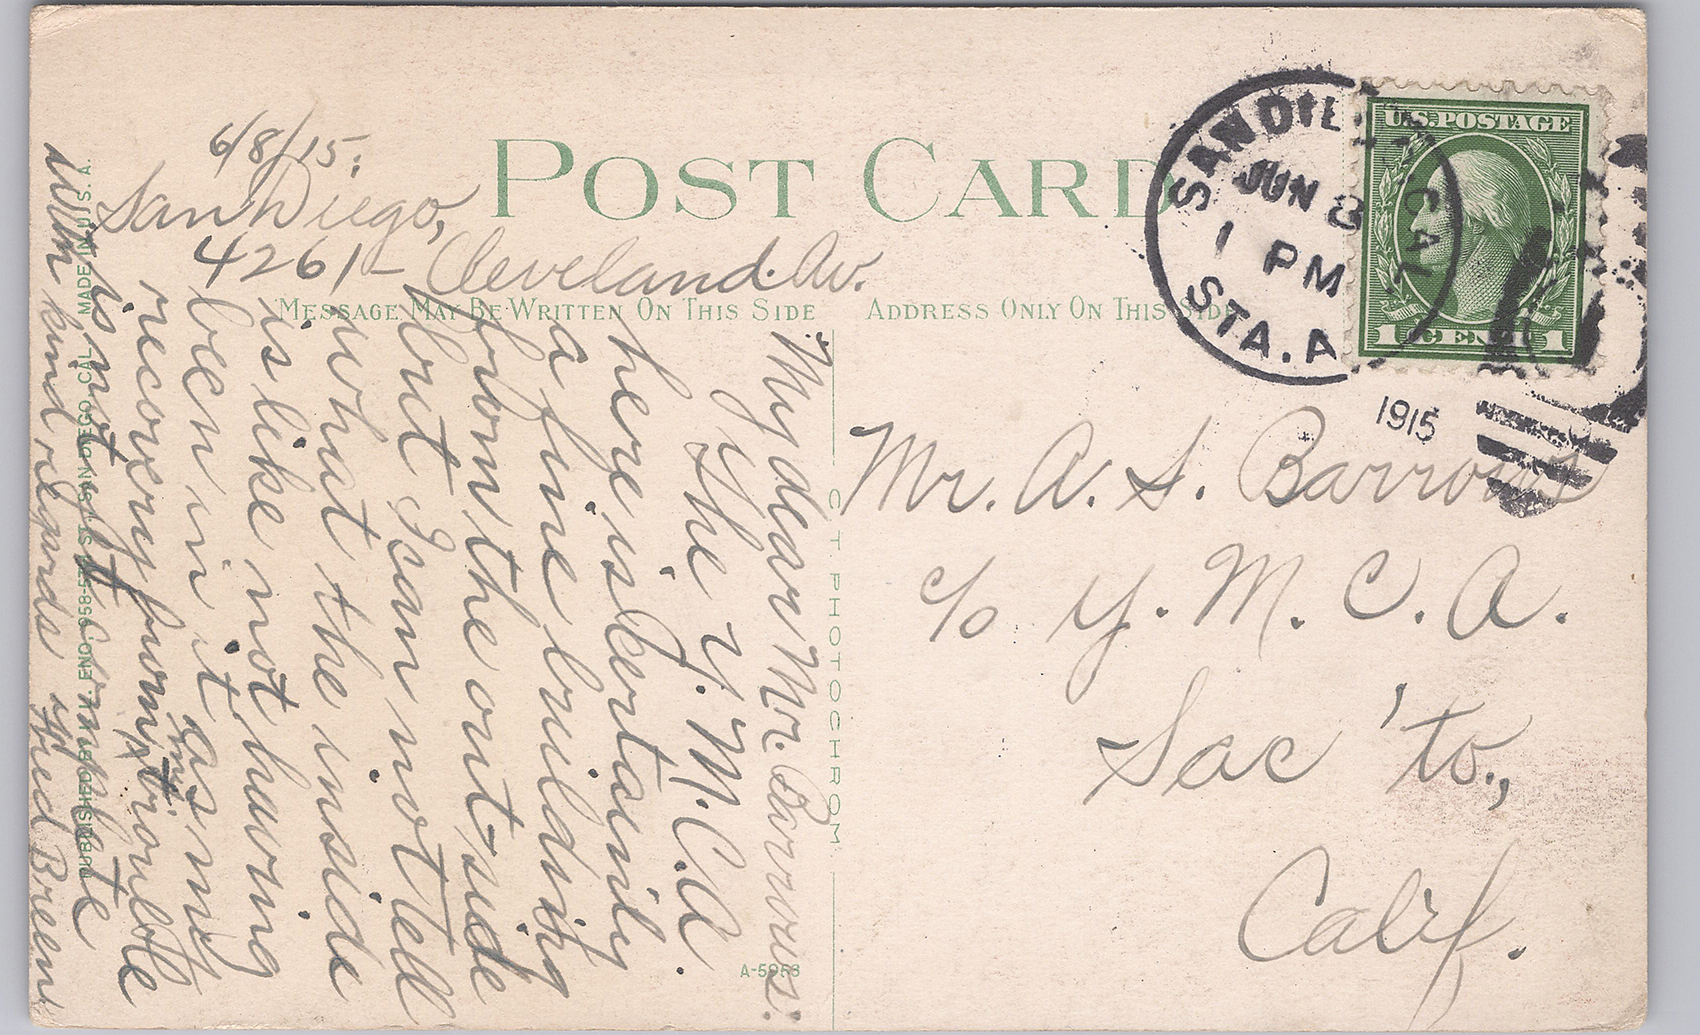 6/8/15.
San Diego,
4261- Cleveland. Av.
POST CARD
MESSAGE MAY BE WRITTEN ON THIS SIDE
ADDRESS ONLY ON THIS SIDE
SAN DIEGO, CAL.
JUN 8
1 PM
STA. A
1915
U.S. POSTAGE
1 CENT 1
My dear Mr. Barrows:
The Y.M.C.A.
here is certainly
a fine building
from the out-side
but I can not tell
what the inside
is like not having
been in it as my
recovery from my trouble
is not yet complete
With kind regards
Fred Breen
Mr. A. S. Barrows
c/o Y. M. C. A.
Sac'to.,
Calif.
C T PHOTOCHROM
A-5953
MADE IN U. S. A.